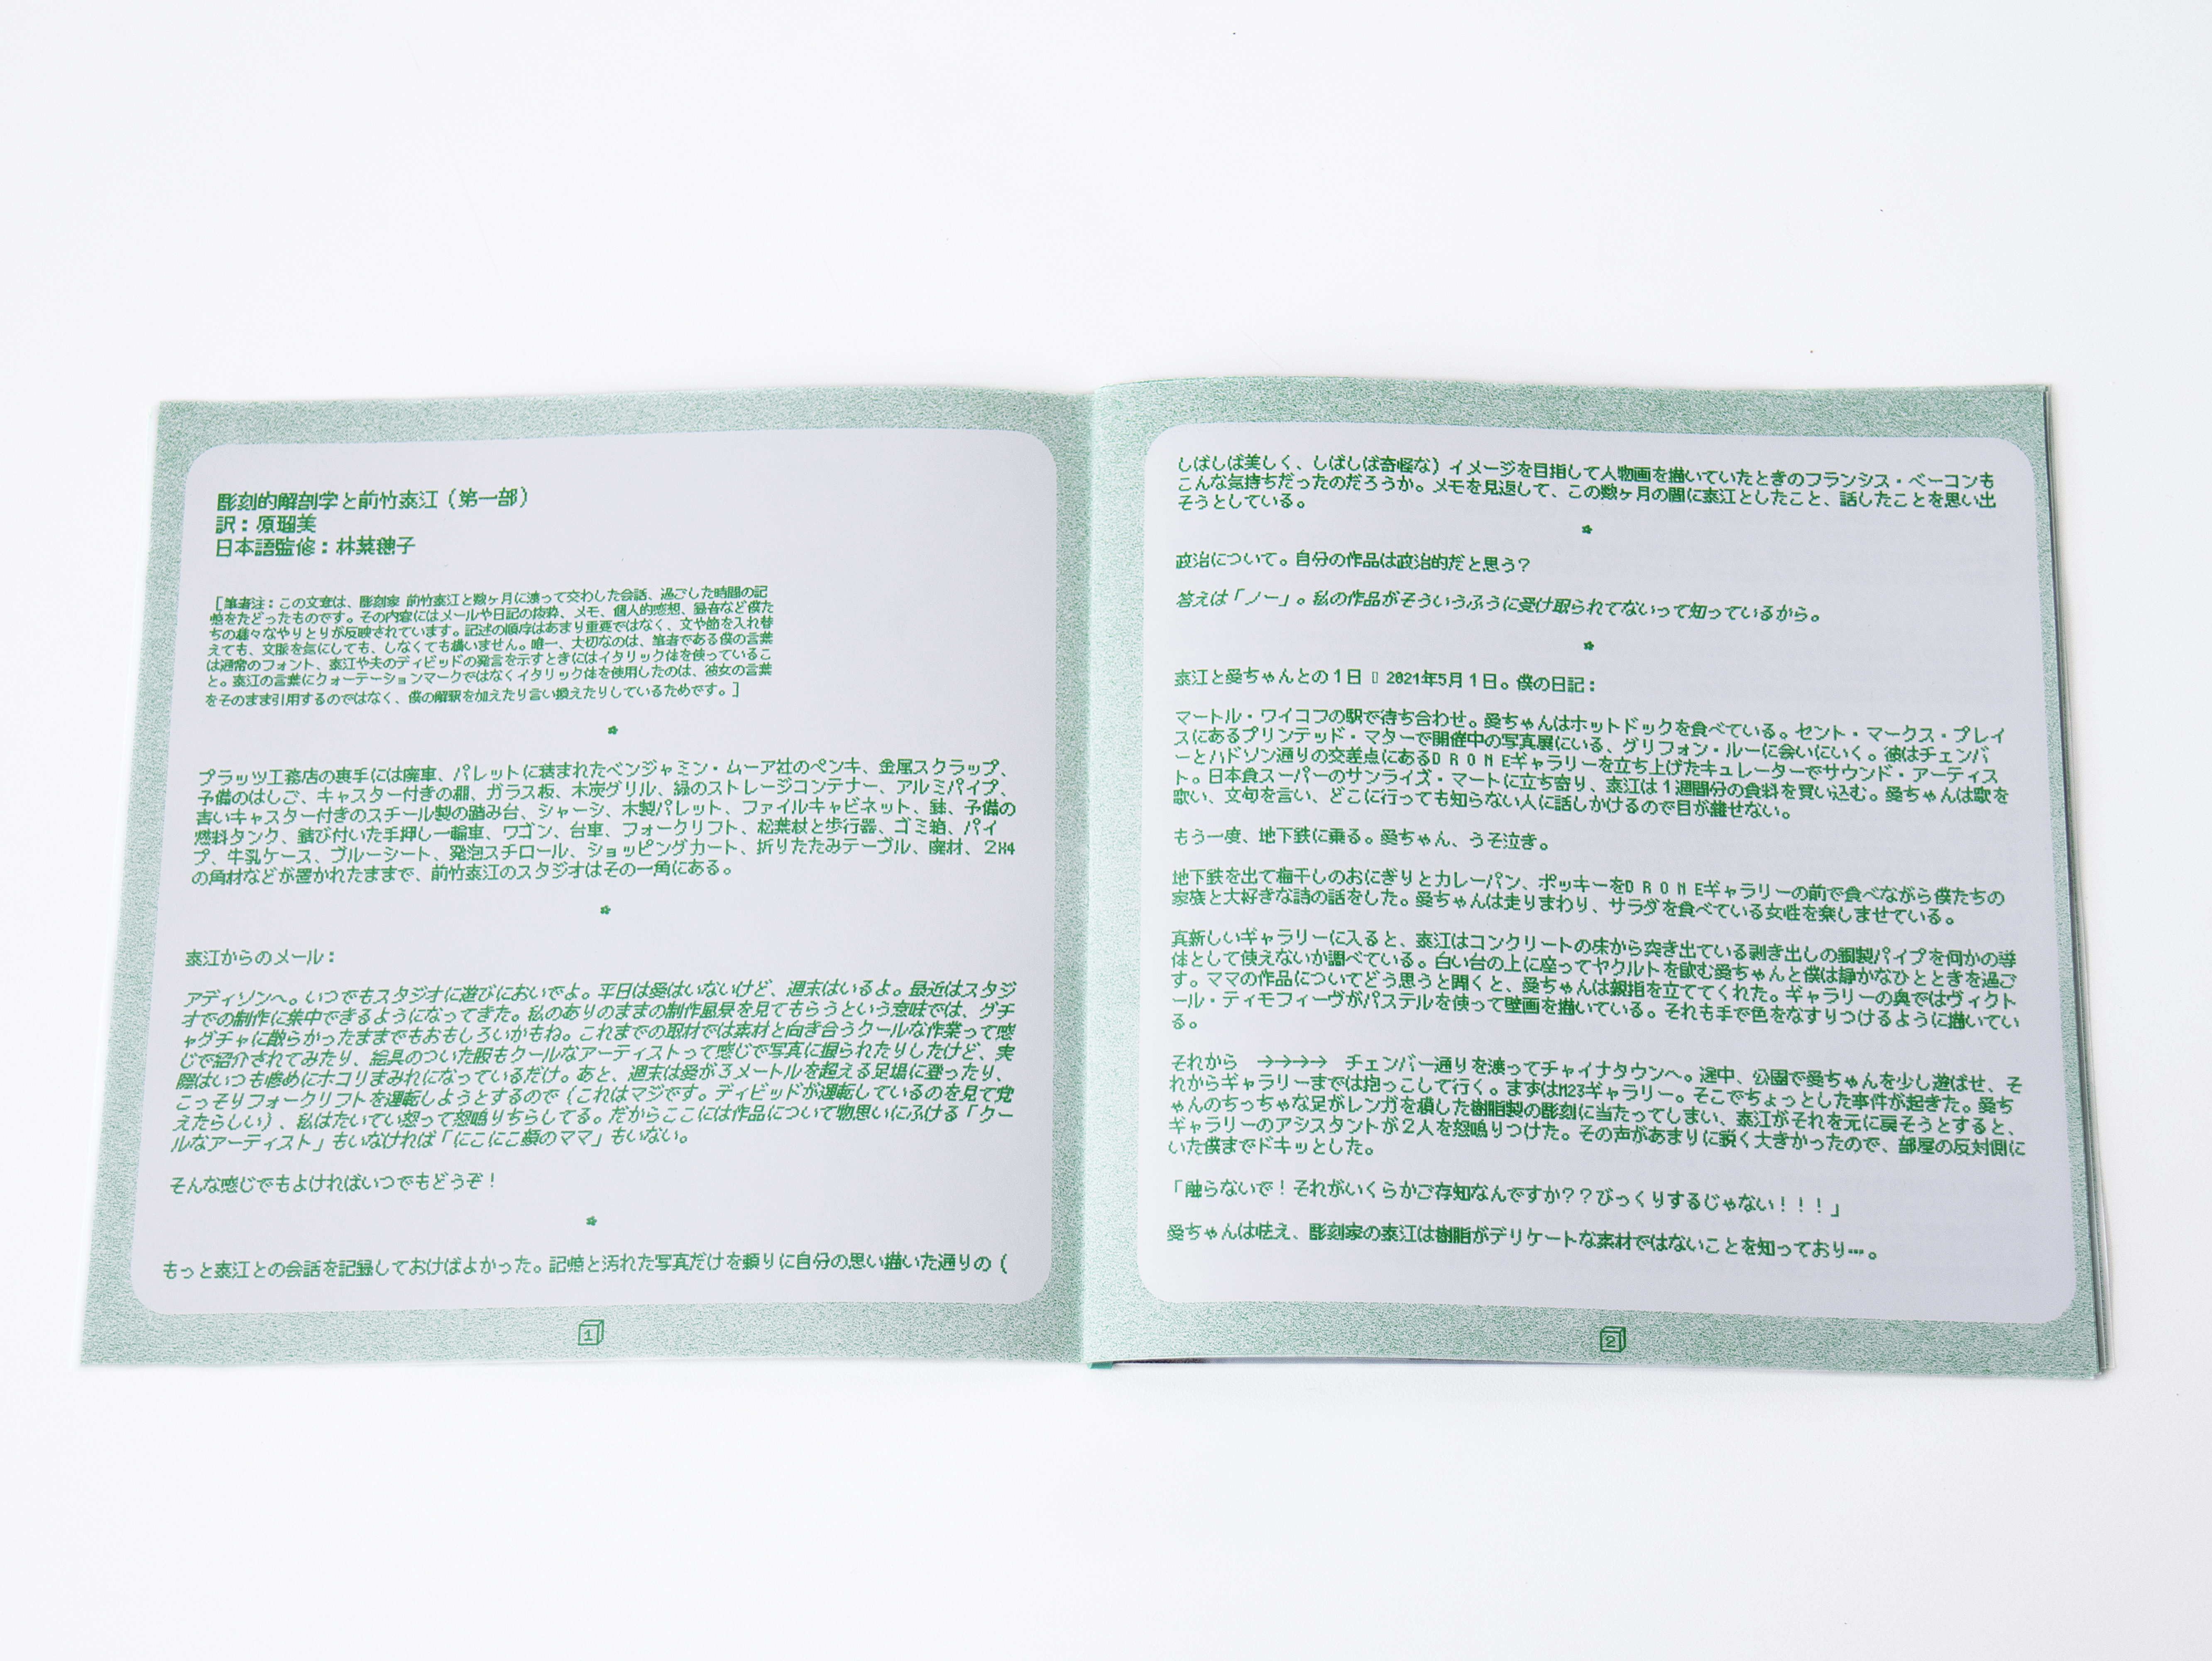 彫刻的解剖学と前竹泰江（第一部）
訳：原瑠美
日本語監修：林菜穂子
［筆者注：この文章は、彫刻家 前竹泰江と数ヶ月に渡って交わした会話、過ごした時間の記
憶をたどったものです。その内容にはメールや日記の抜粋、メモ、個人的感想、録音など僕た
ちの種々なやりとりが反映されています。記述の順序はあまり重要ではなく、文や節を入れ替
えても、文脈を気にしても、しなくても構いません。唯一、大切なのは、筆者である僕の言葉
は通常のフォント、泰江や夫のディビッドの発言を示すときにはイタリック体を使っているこ
と。泰江の言葉にクォーテーションマークではなくイタリック体を使用したのは、彼女の言葉
をそのまま引用するのではなく、僕の解釈を加えたり言い換えたりしているためです。］
プラッツ工務店の裏手には廃車、パレットに積まれたベンジャミン・ムーア社のペンキ、金属スクラップ、
予備のはしご、キャスター付きの棚、ガラス板、木炭グリル、緑のストレージコンテナー、アルミパイプ、
青いキャスター付きのスチール製の踏み台、シャーシ、木製パレット、ファイルキャビネット、鉢、予備の
燃料タンク、錆び付いた手押し一輪車、ワゴン、台車、フォークリフト、松葉杖と歩行器、ゴミ箱、パイ
プ、牛乳ケース、ブルーシート、発泡スチロール、ショッピングカート、折りたたみテーブル、廃材、２X4
の角材などが置かれたままで、前竹泰江のスタジオはその一角にある。
泰江からのメール：
アディソンへ。いつでもスタジオに遊びにおいでよ。平日は愛はいないけど、週末はいるよ。最近はスタジ
オでの制作に集中できるようになってきた。私のありのままの制作風景を見てもらうという意味では、グチ
ャグチャに散らかったままでもおもしろいかもね。これまでの取材では素材と向き合うクールな作業って感
じで紹介されてみたり、絵具のついた服もクールなアーティストって感じで写真に撮られたりしたけど、実
際はいつも惨めにホコリまみれになっているだけ。あと、週末は愛が３メートルを超える足場に登ったり、
こっそりフォークリフトを運転しようとするので（これはマジです。ディビッドが運転しているのを見て覚
えたらしい）、私はたいてい怒って怒鳴りちらしてる。だからここには作品について物思いにふける「クー
ルなアーティスト」もいなければ「にこにこ顔のママ」もいない。
そんな感じでもよければいつでもどうぞ！
もっと泰江との会話を記録しておけばよかった。記憶と汚れた写真だけを頼りに自分の思い描いた通りの（
1
しばしば美しく、しばしば奇怪な）イメージを目指して人物画を描いていたときのフランシス・ベーコンも
こんな気持ちだったのだろうか。メモを見返して、この数ヶ月の間に泰江としたこと、話したことを思い出
そうとしている。
政治について。自分の作品は政治的だと思う？
答えは「ノー」。私の作品がそういうふうに受け取られてないって知っているから。
泰江と愛ちゃんとの１日 ▯ 2021年5月１日。僕の日記：
マートル・ワイコフの駅で待ち合わせ。愛ちゃんはホットドックを食べている。セント・マークス・プレイ
スにあるプリンテッド・マターで開催中の写真展にいる、グリフォン・ルーに会いにいく。彼はチェンバ
ーとハドソン通りの交差点にあるＤＲＯＮＥギャラリーを立ち上げたキュレーターでサウンド・アーティス
ト。日本食スーパーのサンライズ・マートに立ち寄り、泰江は１週間分の食料を買い込む。愛ちゃんは歌を
歌い、文句を言い、どこに行っても知らない人に話しかけるので目が離せない。
もう一度、地下鉄に乗る。愛ちゃん、うそ泣き。
地下鉄を出て梅干しのおにぎりとカレーパン、ポッキーをＤＲＯＮＥギャラリーの前で食べながら僕たちの
家族と大好きな詩の話をした。愛ちゃんは走りまわり、サラダを食べている女性を楽しませている。
真新しいギャラリーに入ると、泰江はコンクリートの床から突き出ている剥き出しの鋼製パイプを何かの導
体として使えないか調べている。白い台の上に座ってヤクルトを飲む愛ちゃんと僕は静かなひとときを過ご
す。ママの作品についてどう思うと聞くと、愛ちゃんは親指を立ててくれた。ギャラリーの奥ではヴィクト
ール・ティモフィーヴがパステルを使って壁画を描いている。それも手で色をなすりつけるように描いてい
る。
それから　→→→→　チェンバー通りを渡ってチャイナタウンへ。途中、公園で愛ちゃんを少し遊ばせ、そ
れからギャラリーまでは抱っこして行く。まずはM23ギャラリー。そこでちょっとした事件が起きた。愛ち
ゃんのちっちゃな足がレンガを模した樹脂製の彫刻に当たってしまい、泰江がそれを元に戻そうとすると、
ギャラリーのアシスタントが２人を怒鳴りつけた。その声があまりに鋭く大きかったので、部屋の反対側に
いた僕までドキッとした。
「触らないで！それがいくらかご存知なんですか？？びっくりするじゃない！！！」
愛ちゃんは怯え、彫刻家の泰江は樹脂がデリケートな素材ではないことを知っており…。
2